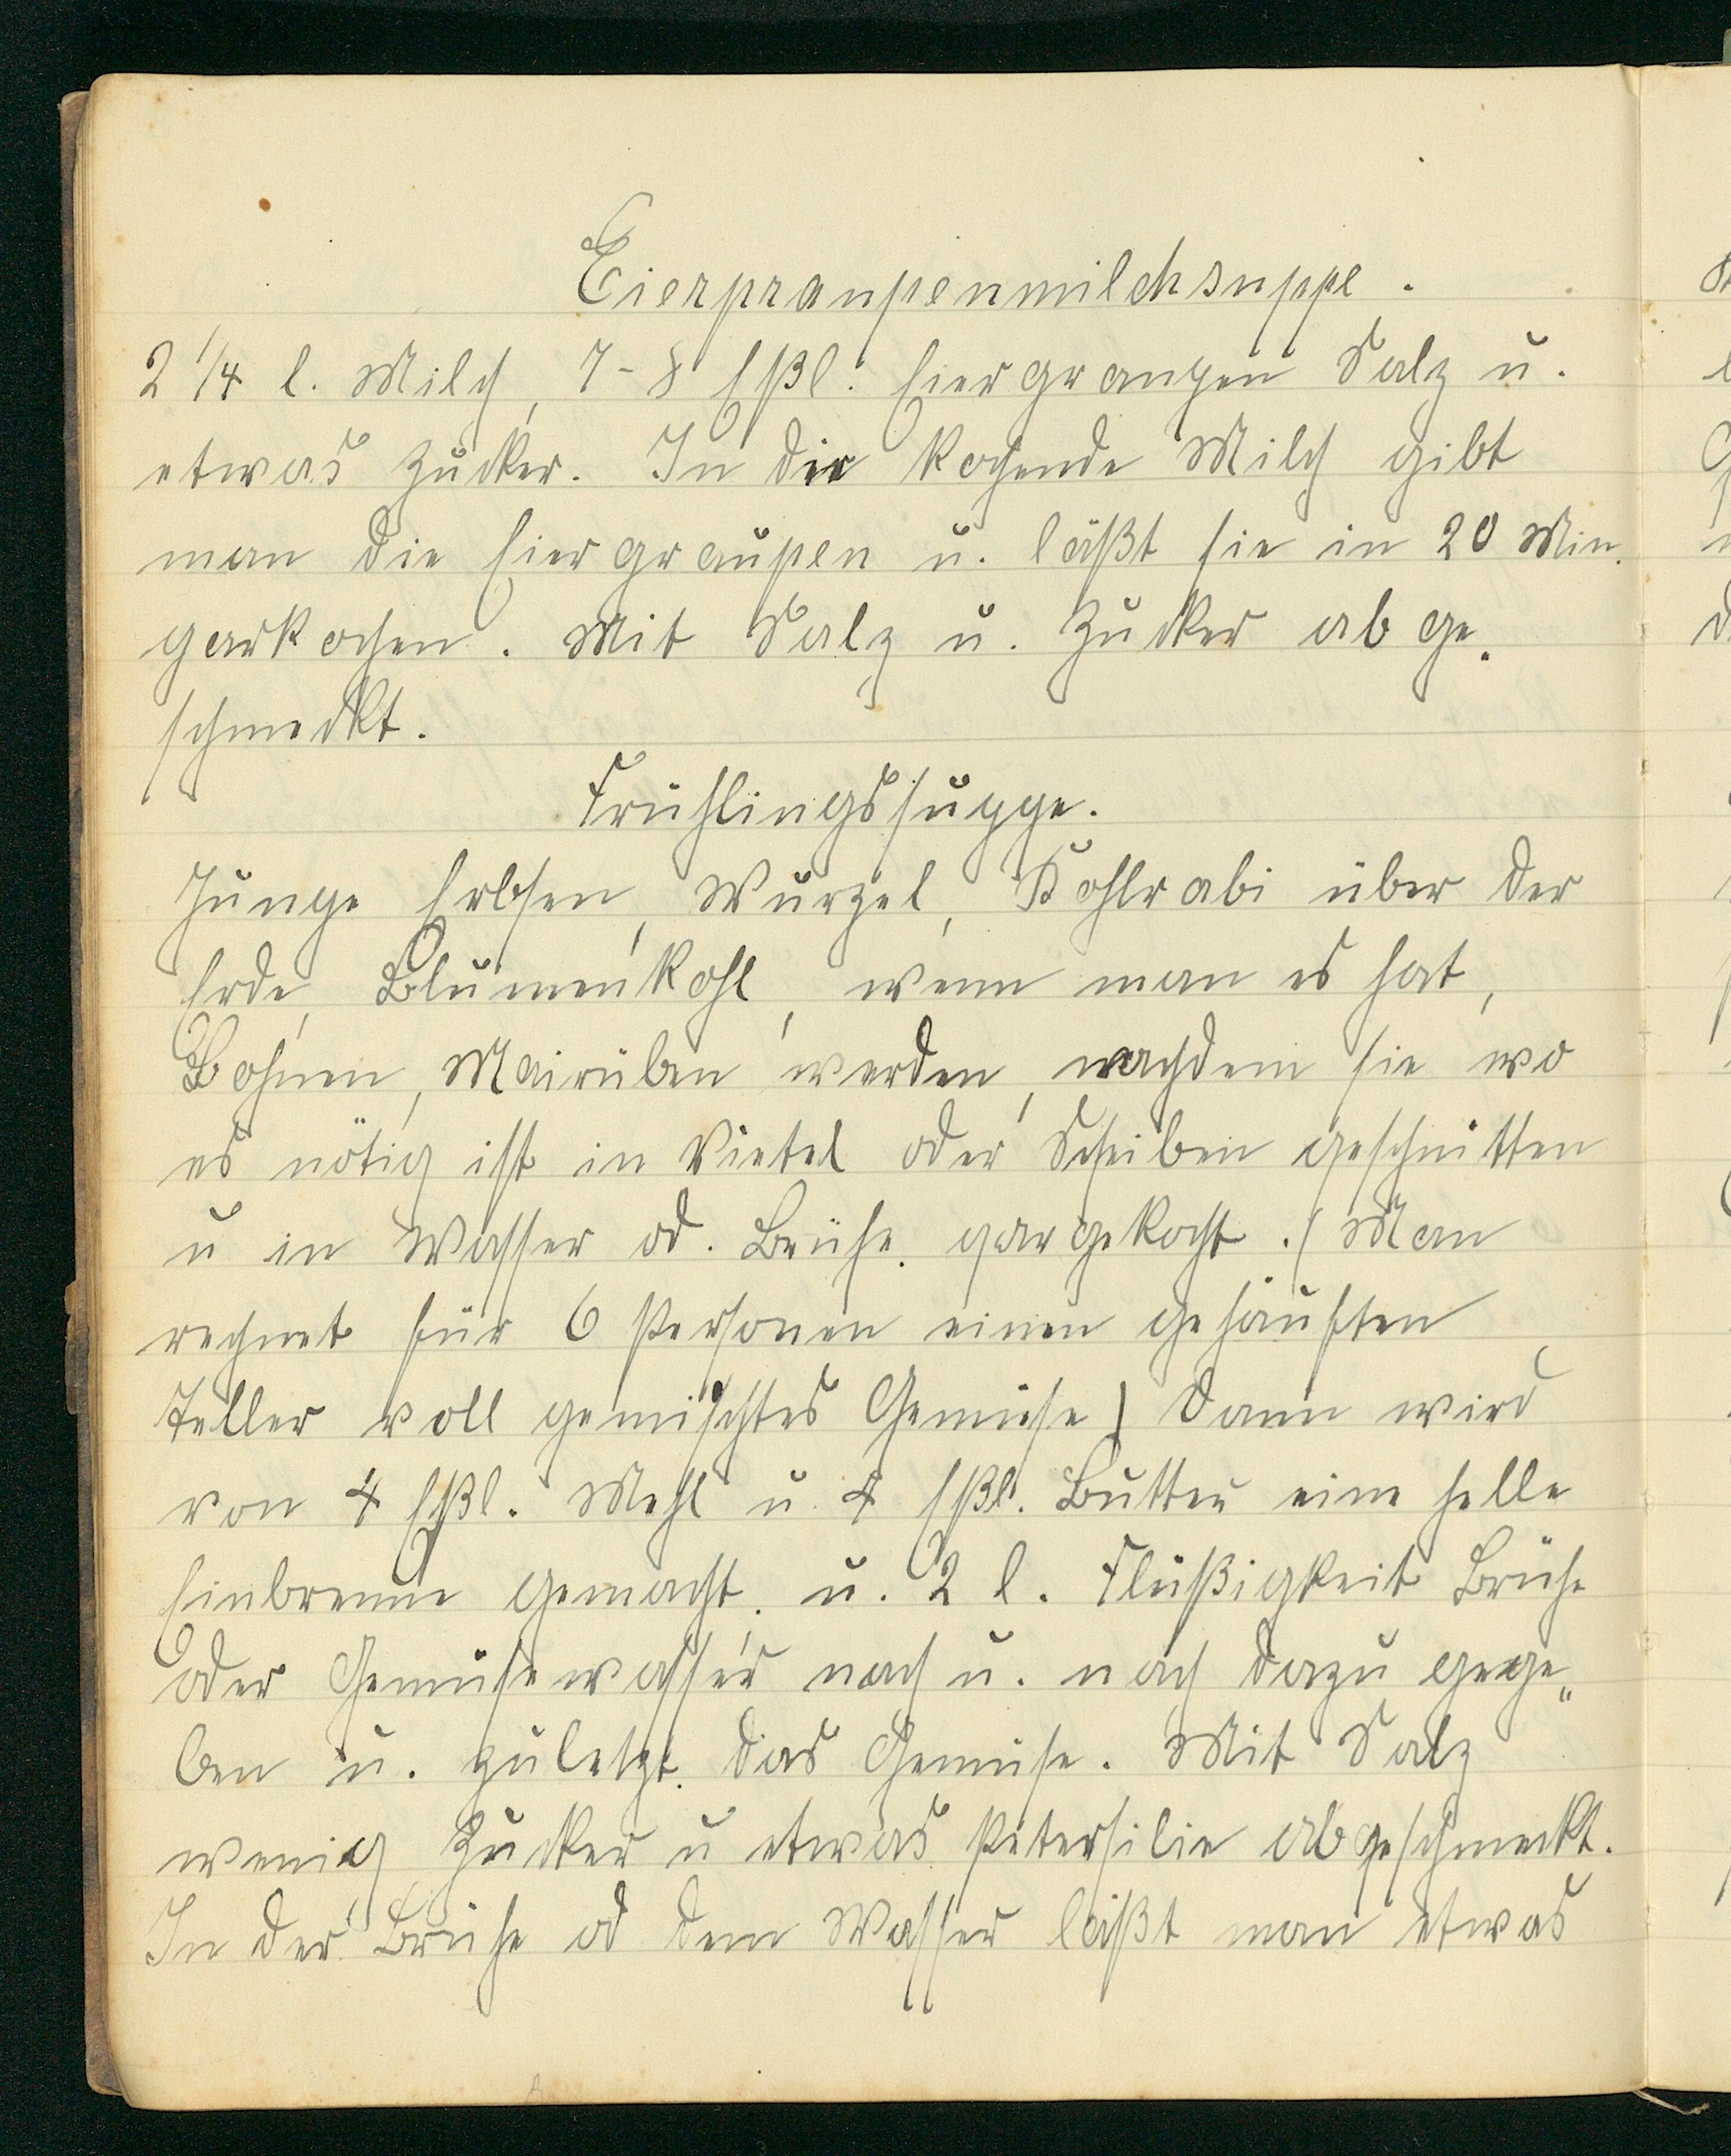 Eierpraupenmilchsuppe.
2 1/4 l. Milch, 7-8 Eßl. Eiergraupen Salz u.
etwas Zucker. In die kochende Milch gibt
man die Eiergraupen u. läßt sie in 20 Min.
garkochen. Mit Salz u. Zucker abge„
schmeckt.
Frühlingssuppe.
Junge Erbsen, Wurzel, Kohlrabi über der
Erde, Blumenkohl, wenn man es hat,
Bohnen, Mairüben werden, nachdem sie wo
es nötig ist in Vietel oder Scheiben geschnitten
u in Wasser od. Brühe gargekocht. (Man
rechnet für 6 Personen einen gehäuften
Teller voll gemischtes Gemüse) Dann wird
von 4 Eßl. Mehl u. 4 Eßl. Butter eine helle
Einbrenne gemacht. u. 2 l. Flüßigkeit Brühe
oder Gemüsewasser nach u. nach dazu gege„
ben u. zuletzt das Gemüse. Mit Salz
wenig Zucker u etwas Petersilie abgeschmeckt.
In der Brühe od dem Wasser läßt man etwas